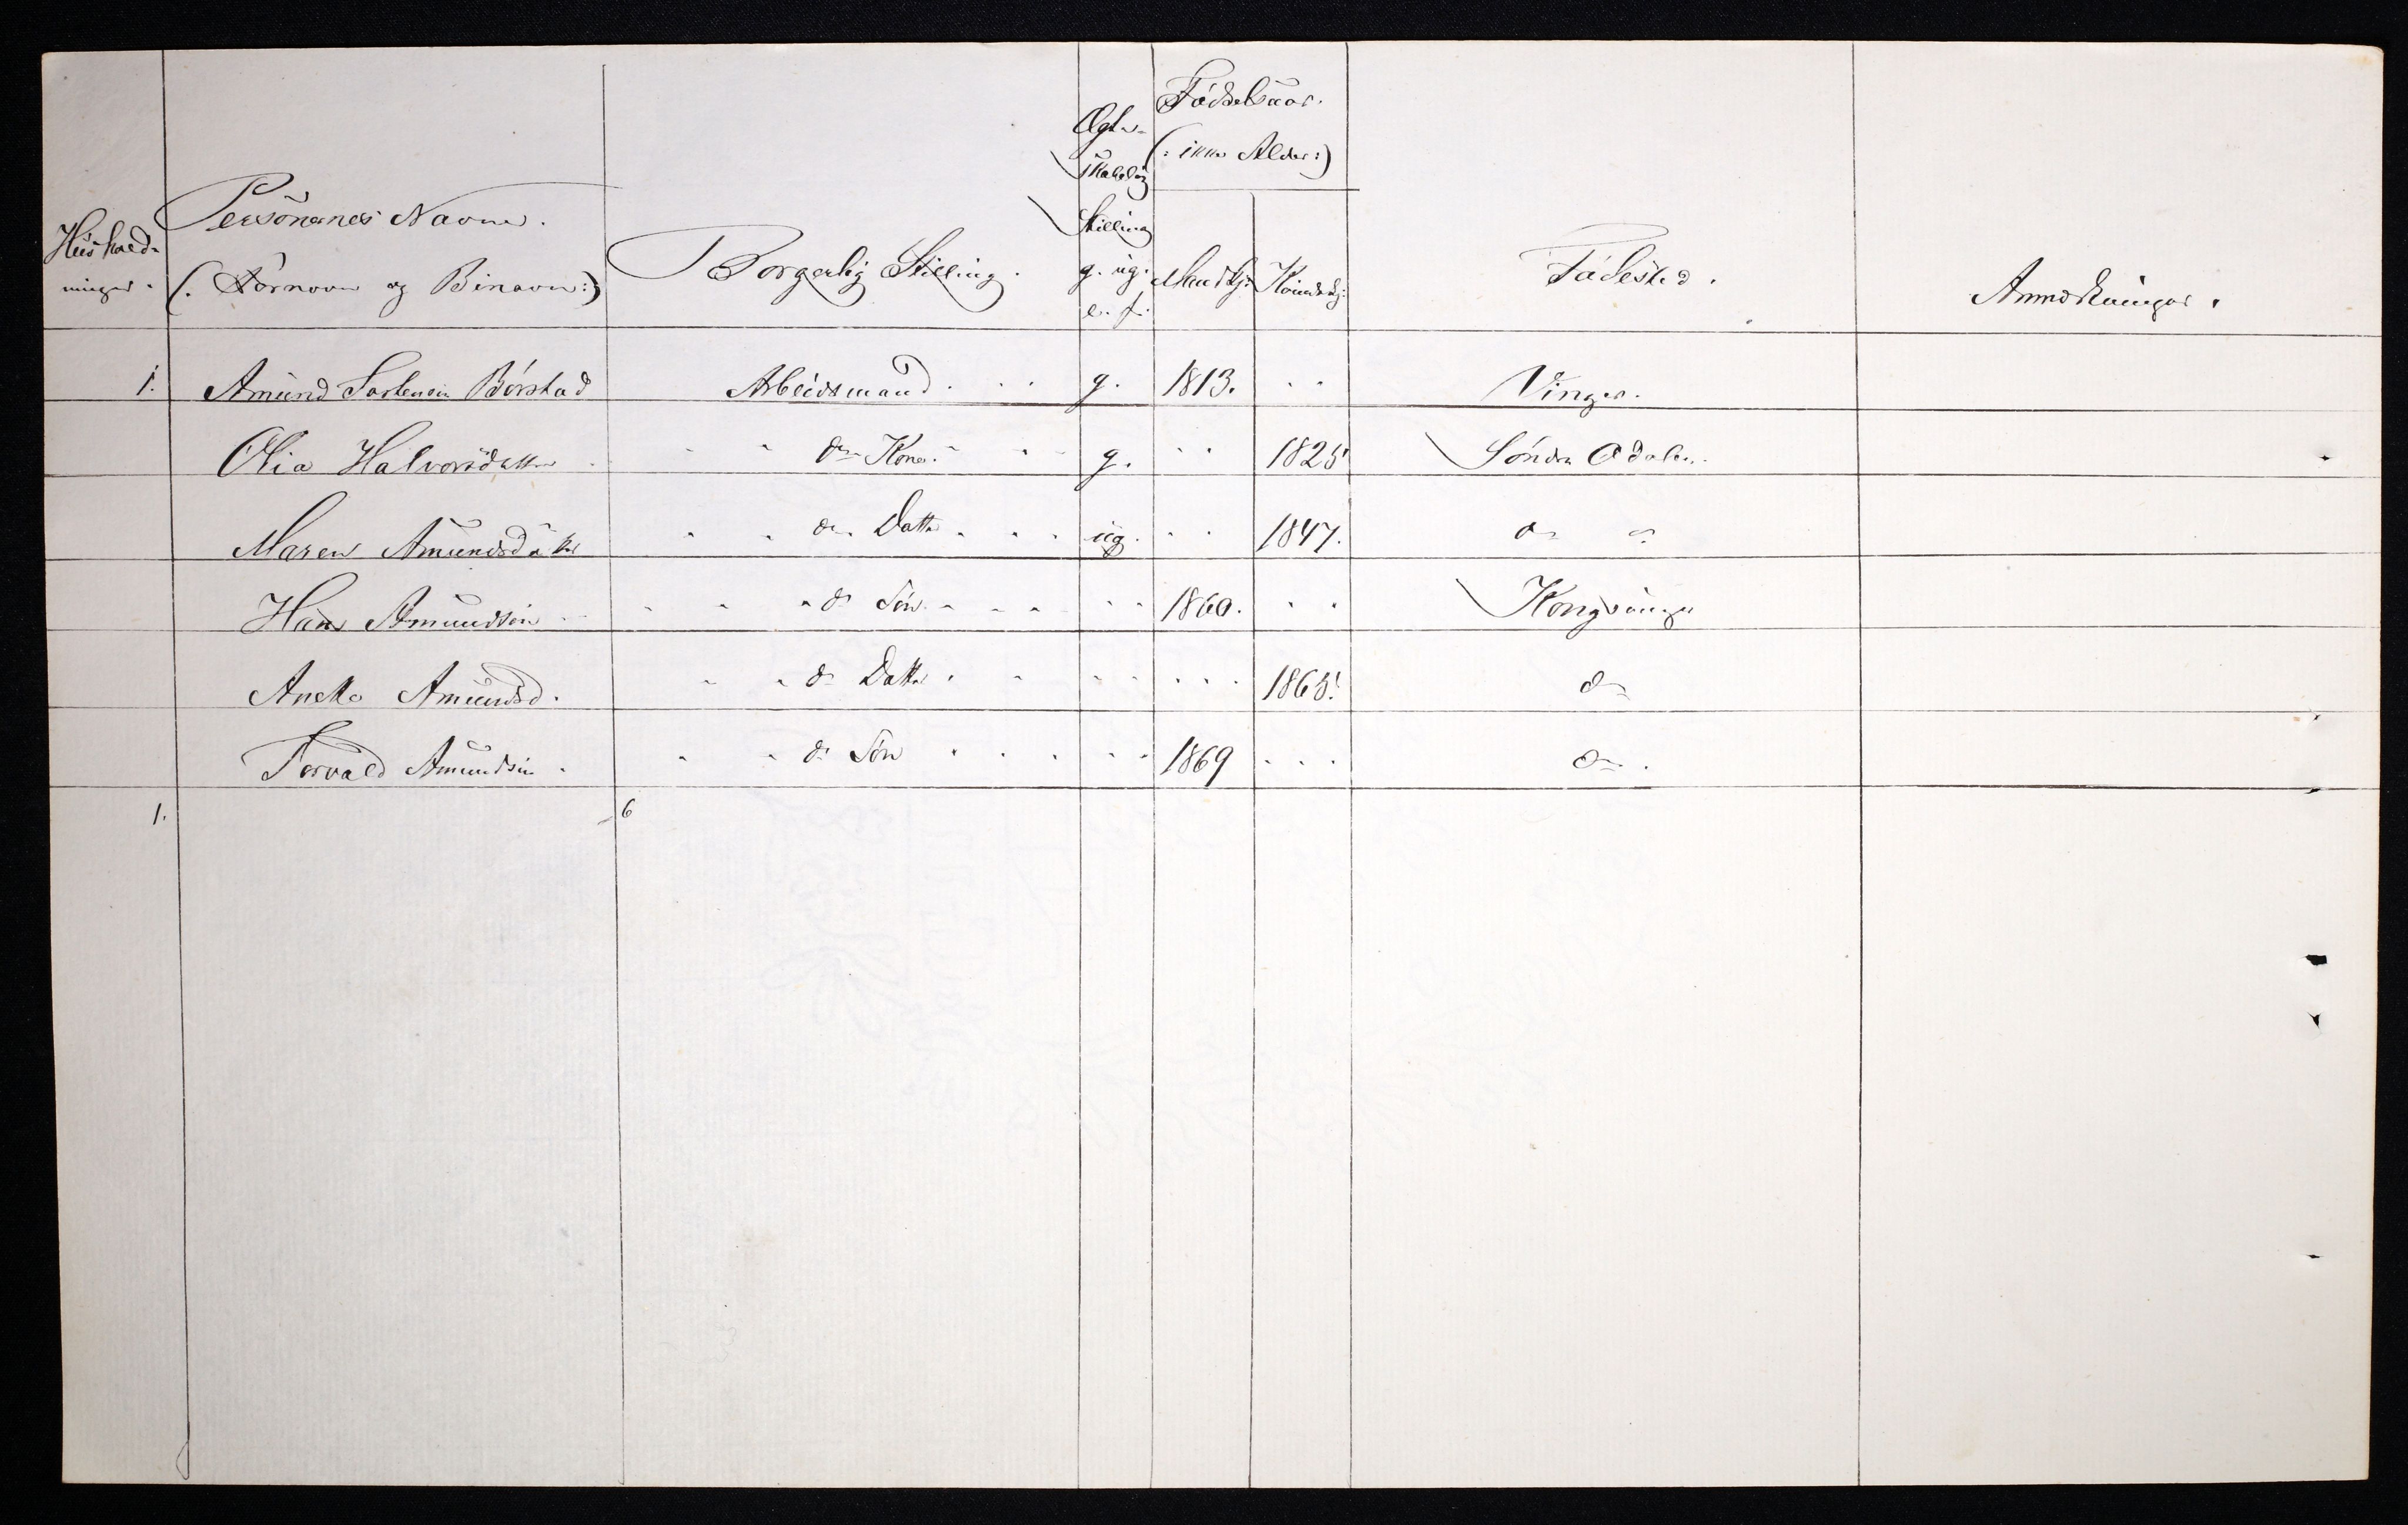 Hushold-
ninger.
Personernes Navne.
(: Fornavn og Binavn :)
Borgerlig Stilling.
Ægte-
skabelig
Stilling
g. ug.
e. f.
Fødselsaar.
(: ikke Alder :)
Mandkj:
Kvindekj:
Fødested.
Anmærkninger.
1. Amund Børstad Arbeidsmand . . . g. 1813. . . Vinger.
Olia Halvorsdatter . - - ds Kone. - - g. . . 1825 Søndre Odalen.
Maren Amundsdatter - - ds Datter - - - ug. . . 1847. do do
Hans Amundsen - - - ds Søn - - - - . . 1860. . . Kongsvinger
Anette Amundsd. - - ds Datter - - . . . . . 1865. do
Torvald Amundsen . - - ds Søn - - - . . 1869 . . . do.
1. 6